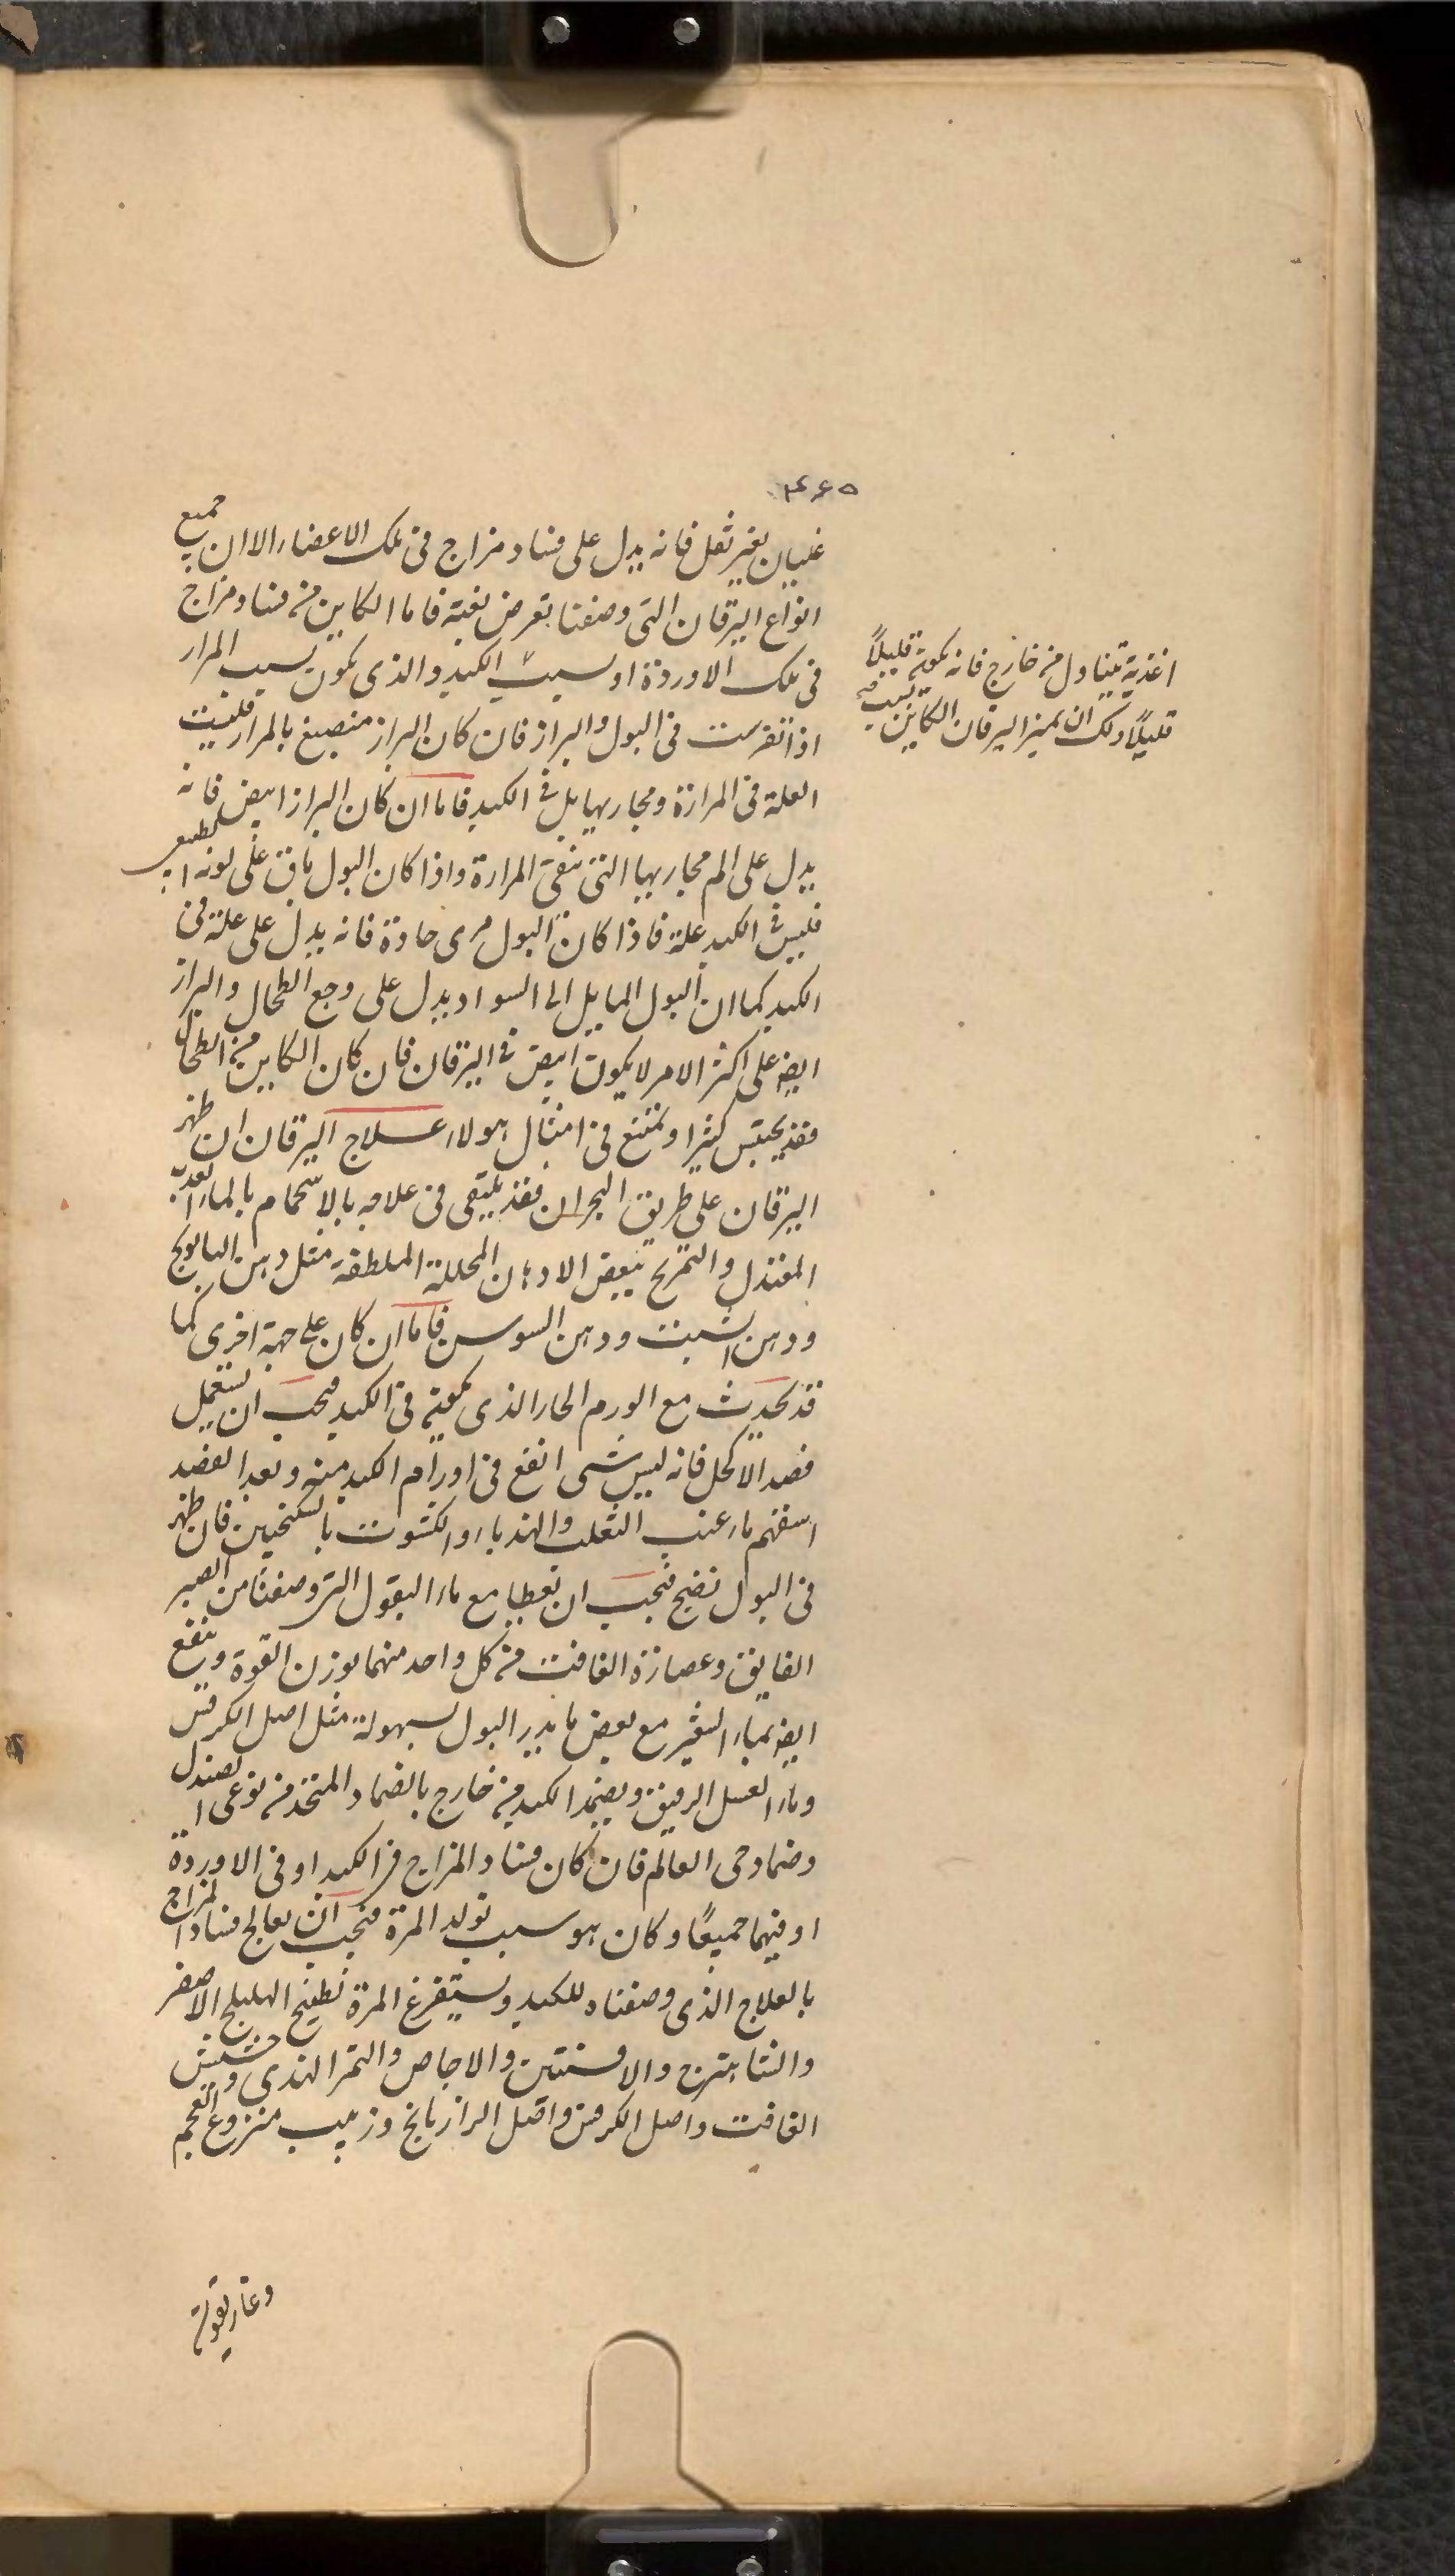 ٤٦٥
غليان بغير ثقل فانه يدل على فساد مزاج فى تلك الاعضاء الا ان جميع
انواع اليرقان التى وصفنا تعرض بغتة فاما الكاين من فساد مزاج
فى تلك الاوردة او بسبب الكبد والذى يكون بسبب المرار
اغذية تتناول من خارج فانه يكون قليلًا
قليلًا ولك ان تميز اليرقان الكاين بسبب
اذا تفرست فى البول والبراز فان كان البراز منصبغ بالمرار فليست
العلة فى المرارة ومجاريها بل فى الكبد فاما ان كان البراز ابيض فانه
يدل على الم مجاريها التى تنقى المرارة واذا كان البول باق على لونه الطبيعى
فليس فى الكبد علة فاذا كان البول مرى حادة فانه يدل على علة فى
الكبد كما ان البول المايل الى السواد يدل على وجع الطحال والبراز
ايضا على اكثر الامر لا يكون ابيض فى اليرقان فان كان الكاين من الطحال
فقد يحتبس كثيرا ويمتنع فى امثال هولاء علاج اليرقان ان ظهر
اليرقان على طريق البحران فقد يكتفى فى علاجه بالاستحمام بالماء العذب
المعتدل والتمريخ ببعض الادهان المحللة الملطفة مثل دهن البابونج
ودهن الشبت ودهن السوسن فاما ان كان على جهة اخرى كما
قد يحدث مع الورم الحار الذى يكون فى الكبد فيجب ان يستعمل
فصد الاكحل فانه ليس شى انفع فى اورام الكبد منه وبعد الفصد
اسقهم ماء عنب الثعلب والهندباء والكشوث بالسكنجبين فان ظهر
فى البول نضج فيجب ان تعطيا مع ماء البقول التى وصفنا من الصبر
الفايق وعصارة الغافت من كل واحد منهما بوزن القوة وينفع
ايضا بماء الشعير مع بعض ما يدر البول بسهولة مثل اصل الكرفس
وماء العسل الرقيق ويضمد الكبد من خارج بالضماد المتخذ من نوعى الصندل
وضماد حى العالم فان كان فساد المزاج فى الكبد او فى الاوردة
او فيهما جميعًا وكان هو سبب تولد المرة فيجب ان يعالج فساد المزاج
بالعلاج الذى وصفناه للكبد ويستفرغ المرة بطبيخ الهليلج الاصفر
والشاهترج والافسنتين والاجاص والتمر الهندى وحشيش
الغافت واصل الكرفس واصل الرازيانج وزبيب منزوع العجم
وغاريقون